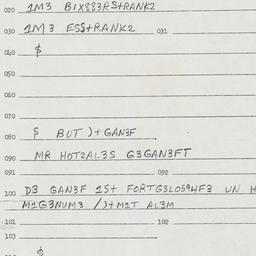 020 1M3 BIX883RS+RANK2
030 1M3 ESS+RANK2 031
040 $
050
060
070
080 $ BUT )+GAN3F
090 MR HOT2AL3S G3GAN3FT
091 092
100 D3 GAN3F 1S+ FORTG3LOS94F3 UN H
M1G3NUM3 /)+M1T AL3M
101 102
103
$